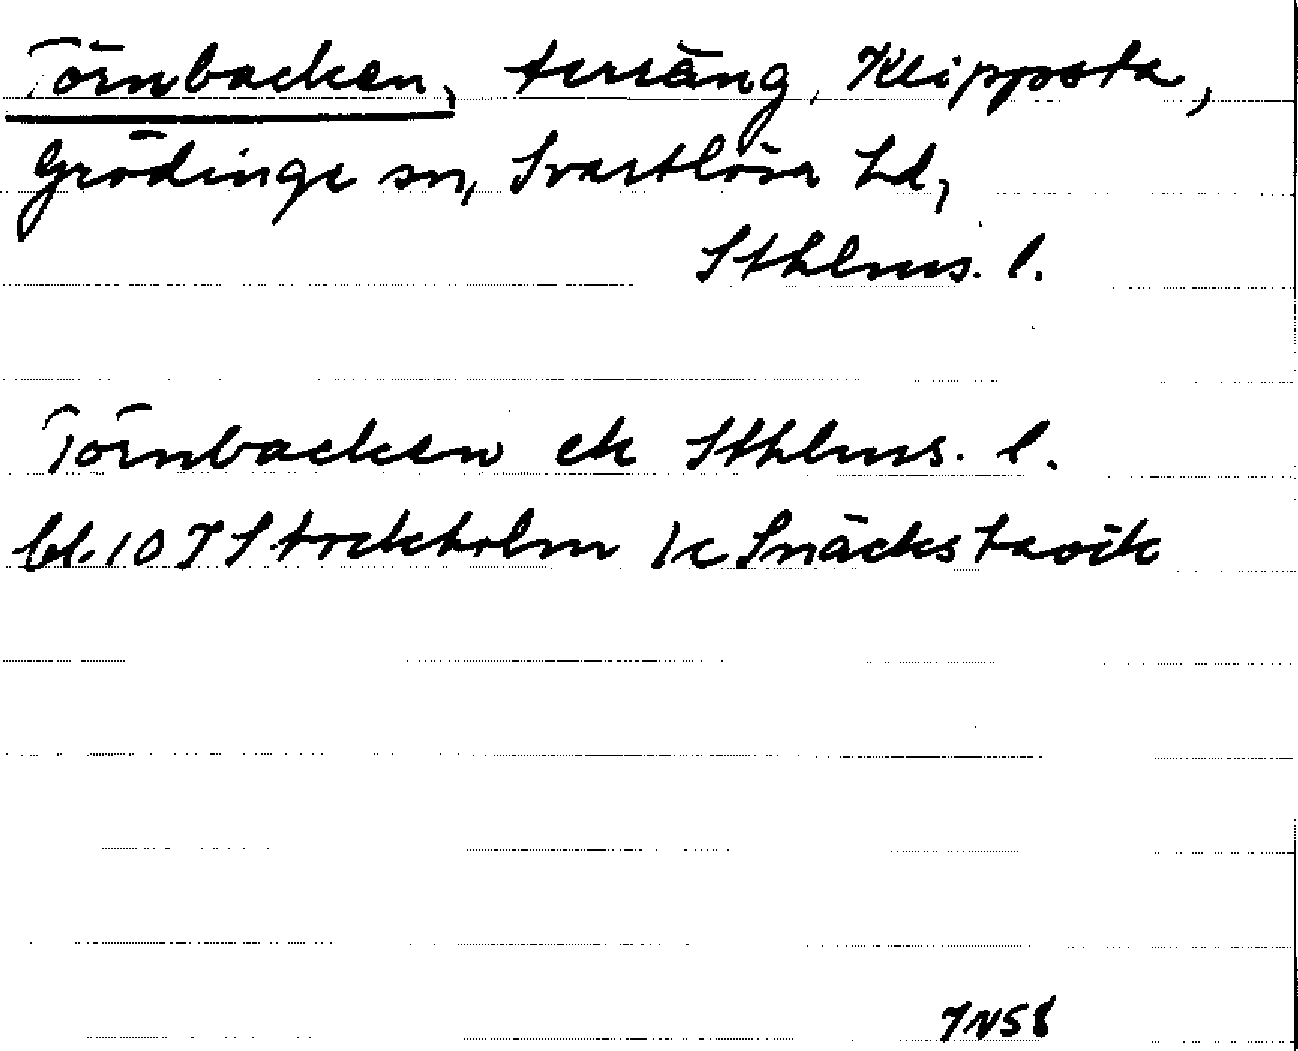 Törnbacken, terräng, Klippsta,
Grödinge sn, Svartlösa hd,
Sthlms. l.
Törnbacken ek Sthlms. l.
bl. 10 I Stockholm 1c Snäckstavik